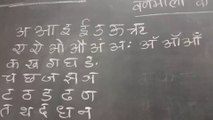 वर्णमाला
अ आ इ ई उ ऊ ऋ
ए ऐ ओ औ अं अः अँ ऑ आँ
क ख ग घ ङ
च छ ज झ ञ
ट ठ ड ढ ण
त थ द ध न